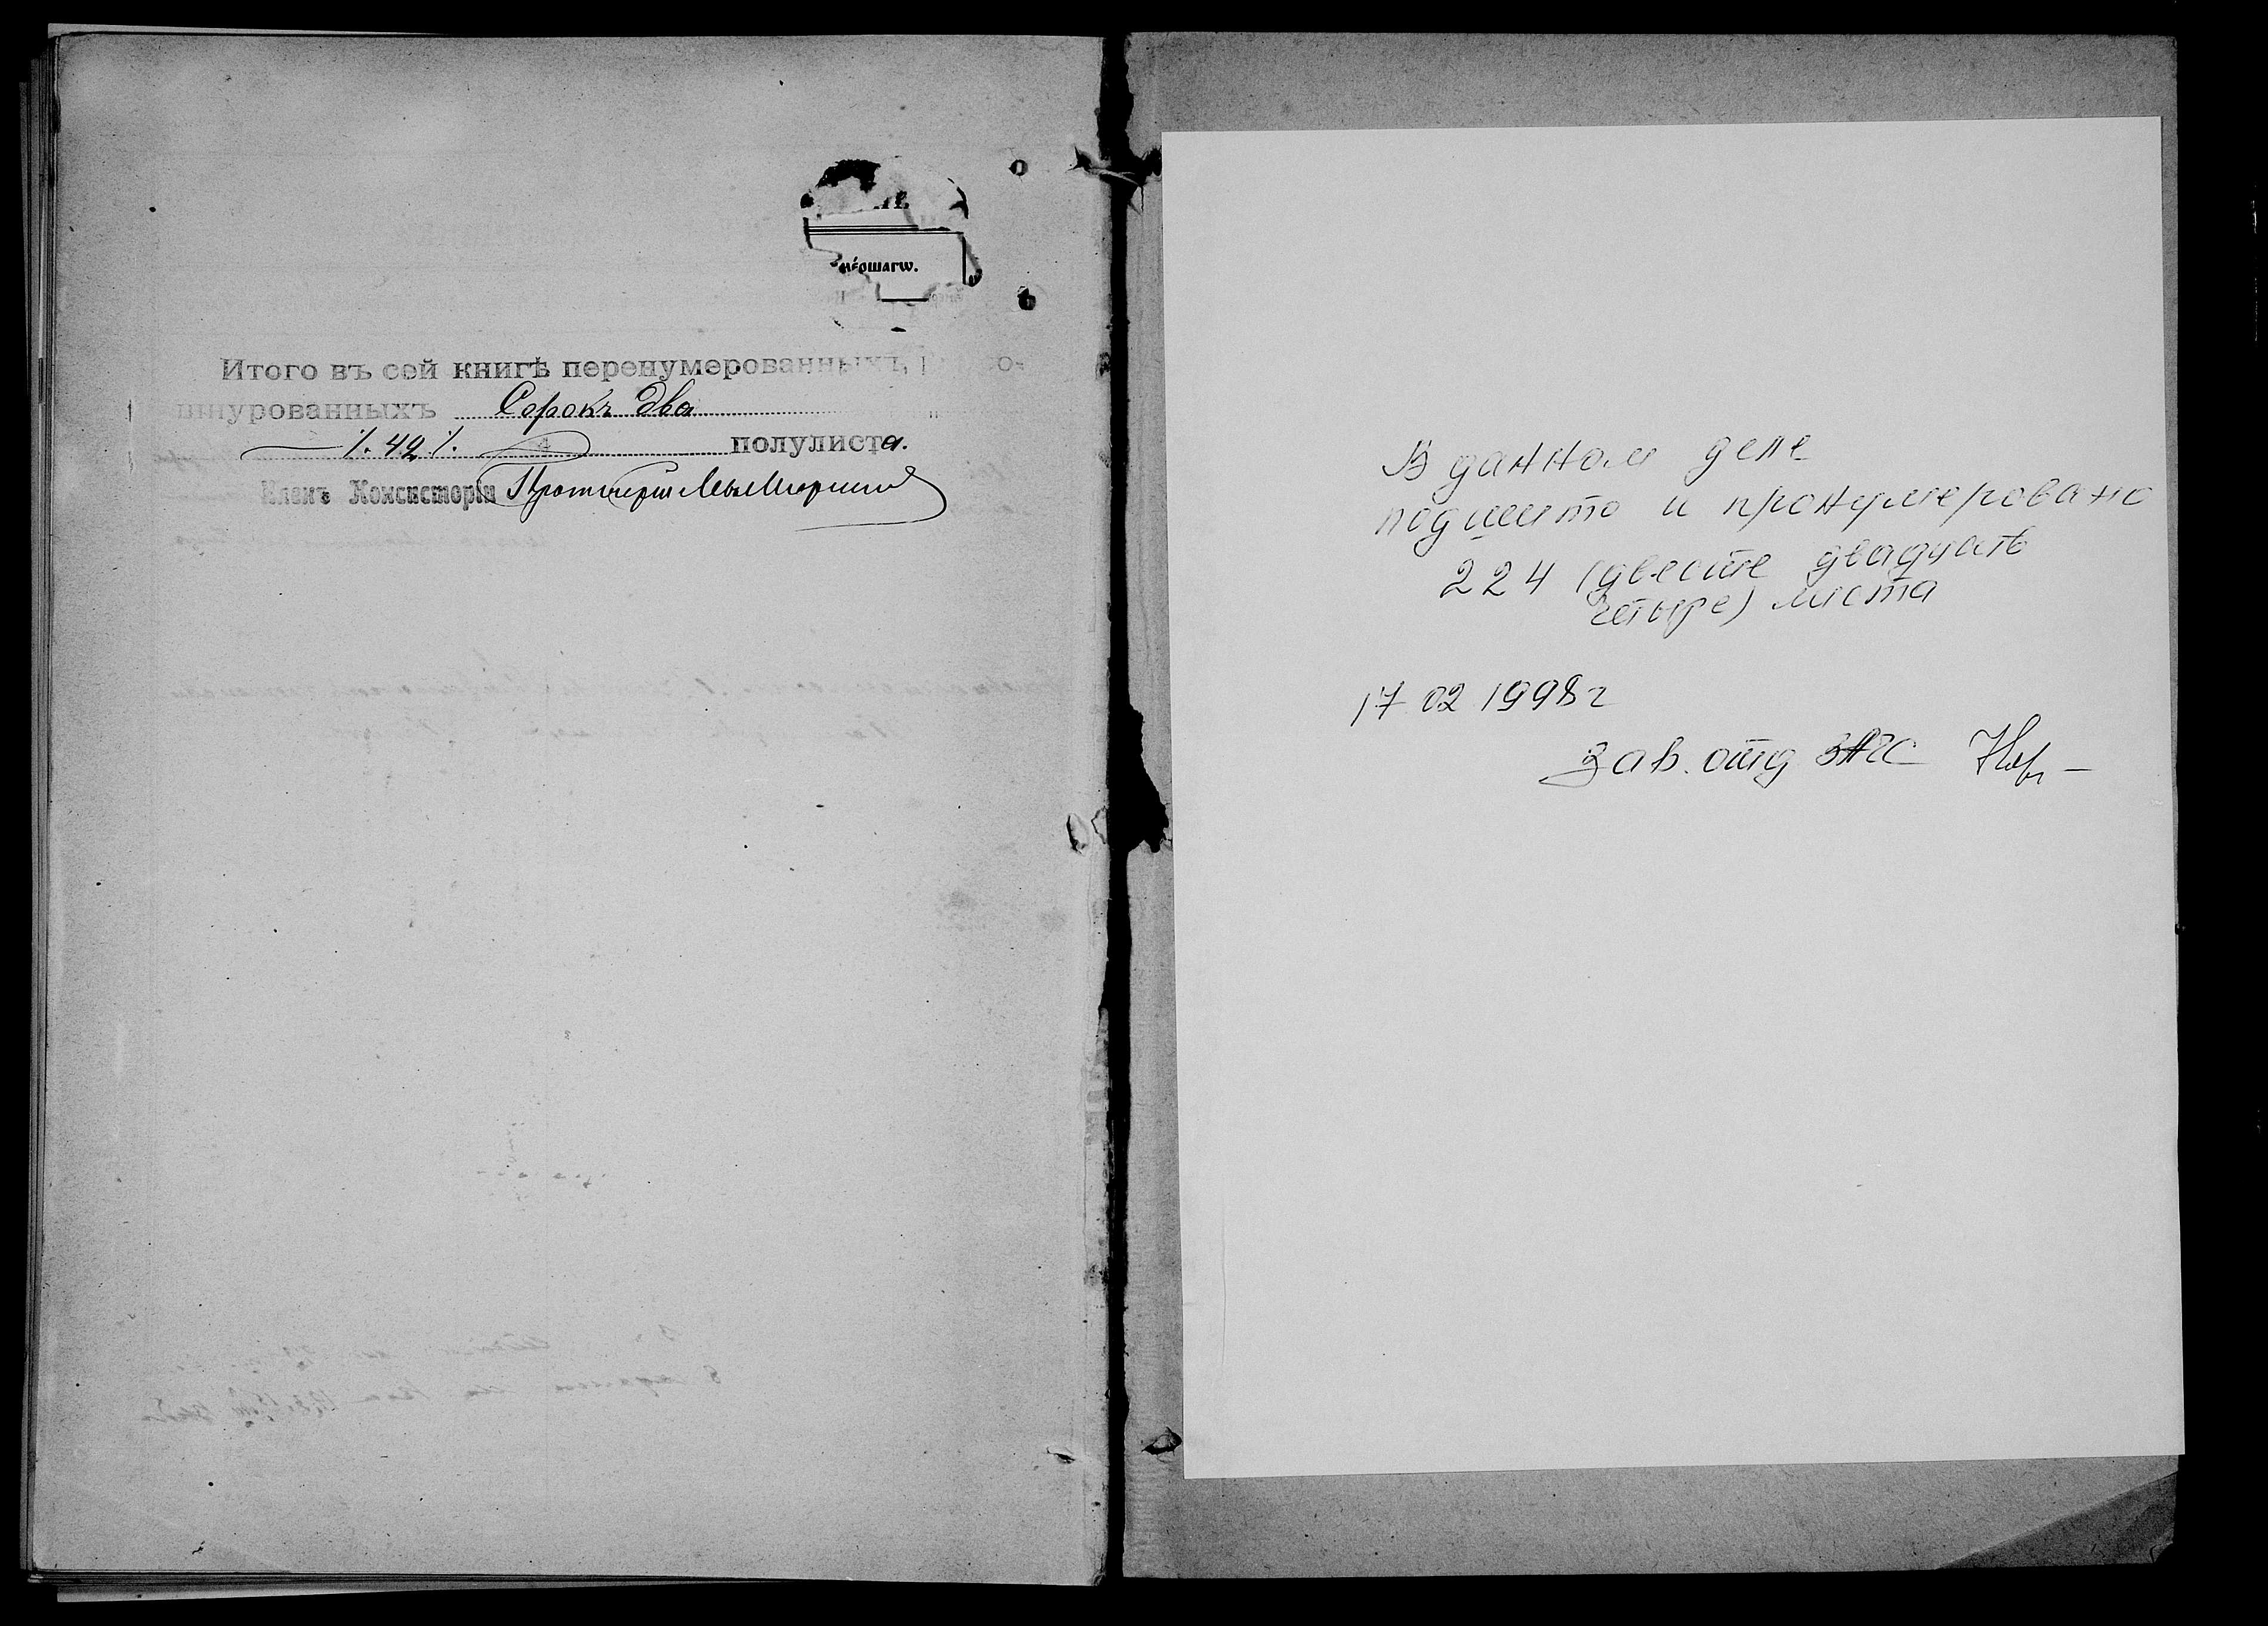 Итого въ сей книгѣ перенумерованныхъ,
шнурованныхъ Сорокъ два
42 полулиста.
Членъ Консисторіи Протоіерей
В данном деле
подшито и пронумеровано
224 (двести двадцать
четыре) листа
17 02 1998 г
Зав. отд ЗАГС